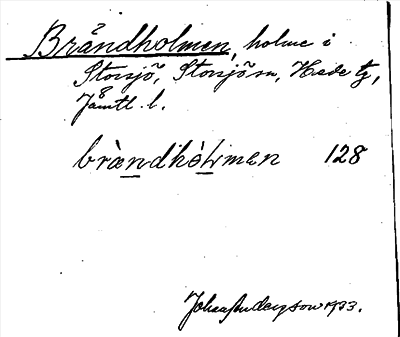 Bråndholmen, holme i
Storsjö, Storsjö sn, Hede tg,
Jämtl. l.
bràndhòlmen 128
Johan Anderson 1933.